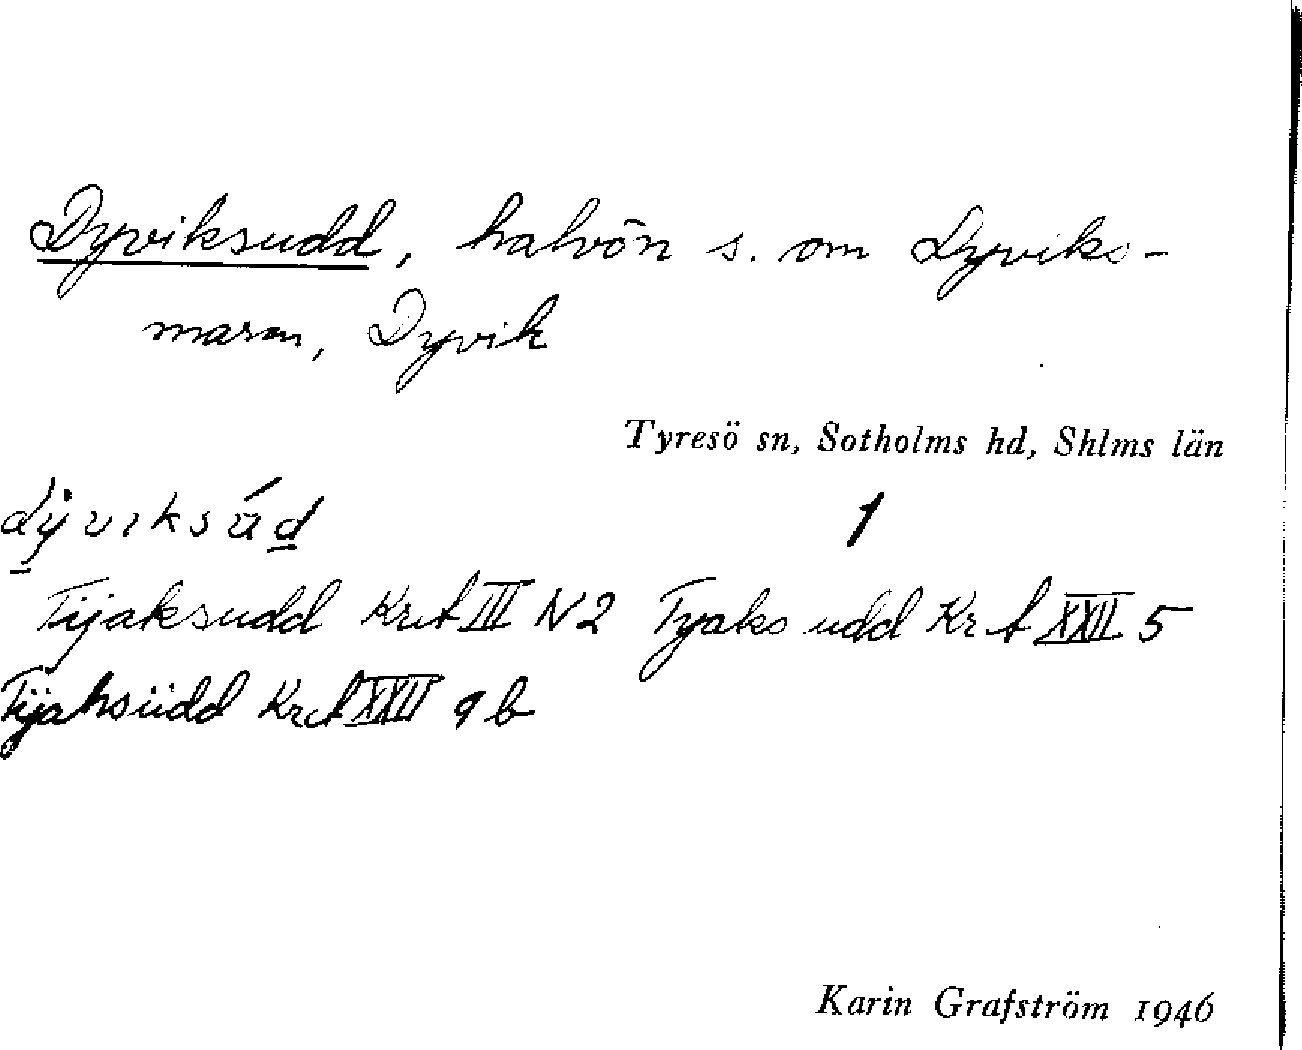 Dyviksudd, halvön s. om Dyviks-
maren, Dyvik
Tyresö sn, Sotholms hd, Shlms län
dy̍viksúd 1
Tijaksudd KrA III N2 Tyaks udd Kr A XXII 5
Tijaksüdd KrA XXII 9 b
Karin Grafström 1946